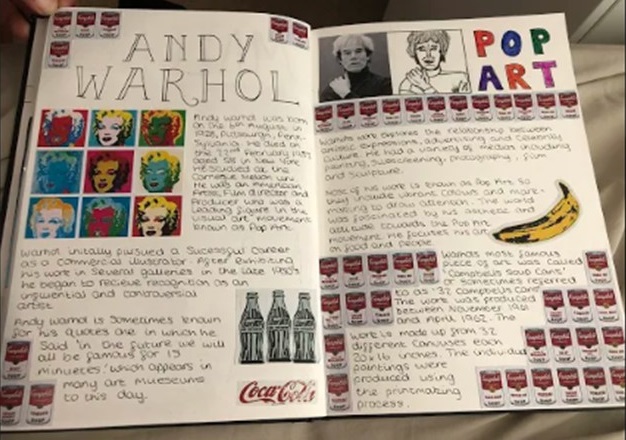 ANDY
WARHOL
Andy Warhol was born
on the 6th August in
1928, Pittsburgh, Penn-
Sylvania. He died on
the 22nd February 1987
aged 58 in New York.
He studied at the
Carnegie Mellon Uni.
He was an American
Artist, Film director and
Producer who was a
Leading figure in the
visual art movement
known as Pop Art.
Warhol initally pursued a Sucessful Career
as a Commercial illustrator. After exhibiting
his work in Several galleries in the late 1950's
he began to recieve recognition as an
influential and controversial
artist.
Andy Warhol is Sometimes known
for his quotes one in which he
Said 'in the future we will
all be famous for 15
minuetes.' which appears in
many art mueseums
to this day.
Coca-Cola
POP
ART
Warhols work explores the relationship between
artistic expressions, advertising and Celebrity
Culture. He used a variety of medias including
painting, Silkscreening, photography, film
and Sculpture.
Most of his work is known as Pop Art so
they include vibrant colours and mark-
making to draw attention. The world
is fascinated by his aesthetic and
attitude towards the Pop Art
movement. He focuses his art
on food and people.
Warhols most famous
piece of art was called
'Campbells Soup Cans'
or Sometimes referred
to as '32 Campbells Soup Cans'
The work was produced
between November 1961
and April 1962. The
work is made up from 32
different Canvases each
20x16 inches. The individual
paintings were
produced using
the printmaking
process.